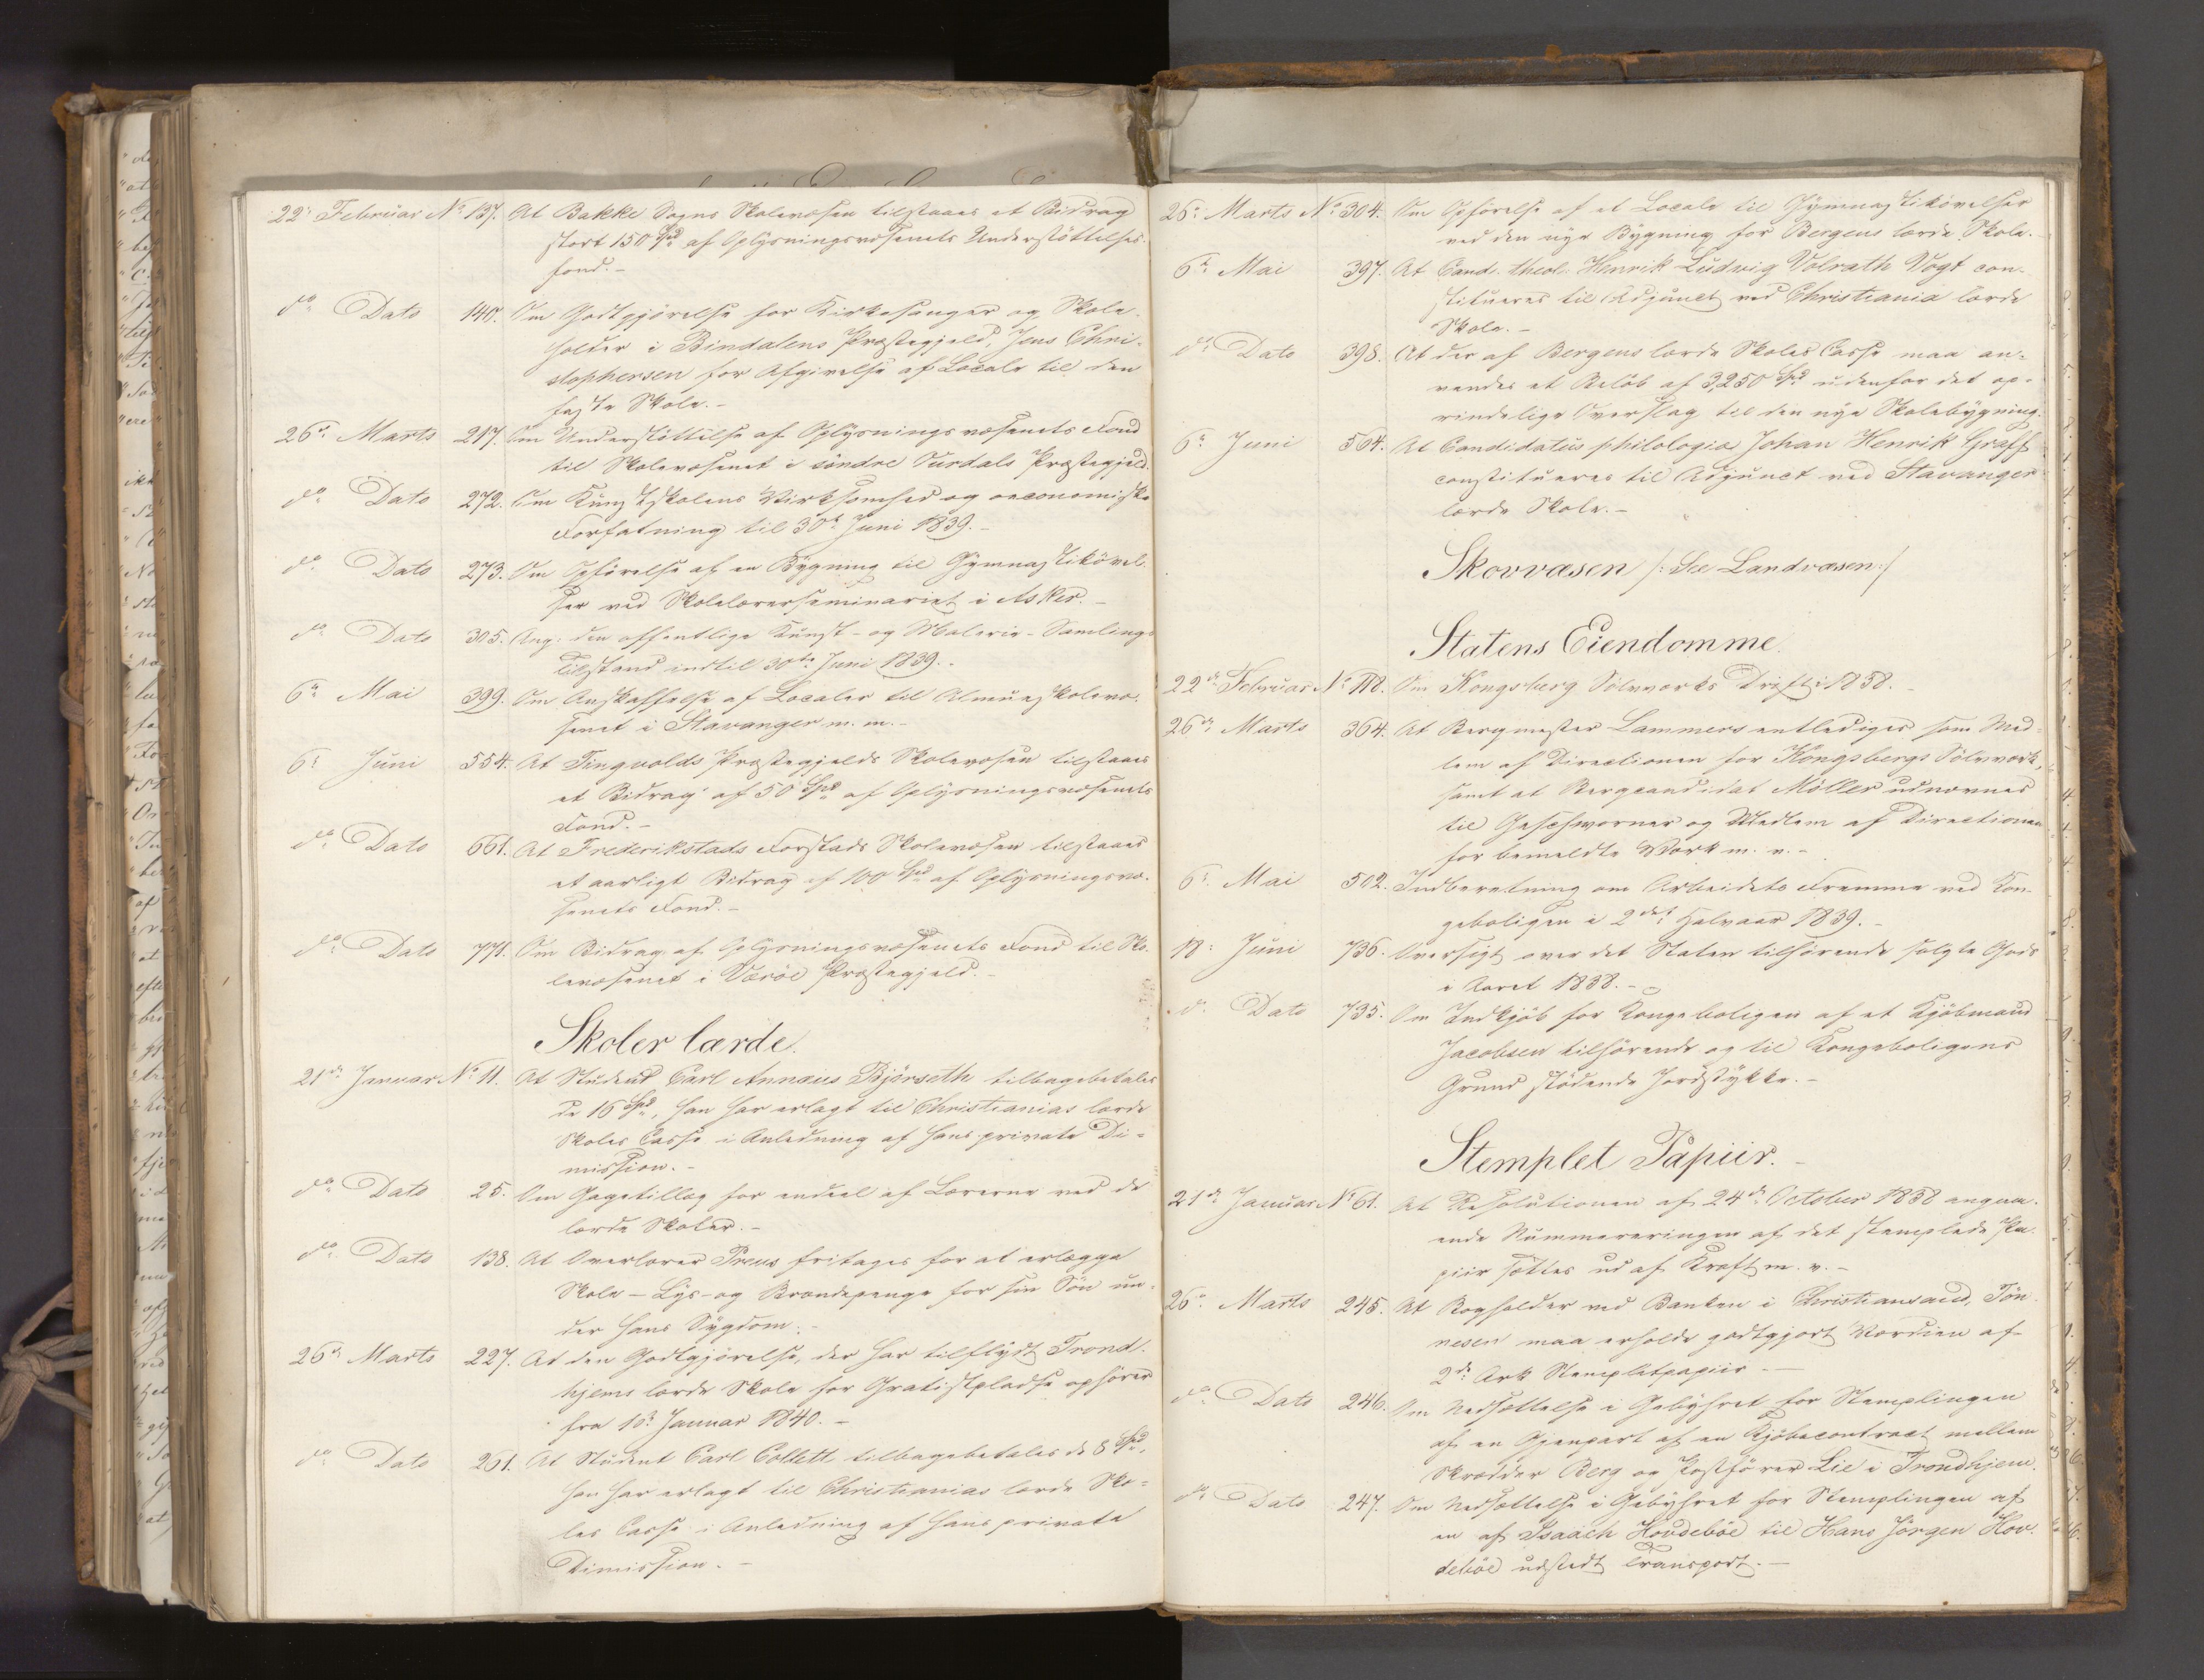 22de Februar No 137. At Bakke Sogns Skolevæsen tilstaaes et Bidrag
stort 150 Spd af Oplysningsvæsenets Understöttelses-
fond. –
do Dato 140. Om Godtgjörelse for Kirkesanger og Skole-
holder i Bindalens Præstegjeld, Jens Chri-
stophersen for Afgivelse af Locale til den
faste Skole. –
26de Marts 217. Om Understöttelse af Oplysningsvæsenets Fond
til Skolevæsenet i söndre Surdals Præstegjeld.
do Dato 272. Om Kunstskolens Virksomhed og oeconomiske
Forfatning til 30te Juni 1839. –
do Dato 273. Om Opförelse af en Bygning til Gymnastikövel-
ser ved Skolelærerseminariet i Asker. –
do Dato 305. Ang. den offentlige Kunst- og Malerie-Samlings
Tilstand indtil 30te Juni 1839. –
6te Mai 399. Om Anskaffelse af Locale til Almueskolevæ-
senet i Stavanger m. m. –
6te Juni 554. At Tingvolds Præstegjelds Skolevæsen tilstaaes
et Bidrag af 50 Spd af Oplysningsvæsenets
Fond. –
do Dato 661. At Frederikstads Forstads Skolevæsen tilstaaes
et aarligt Bidrag af 100 Spd af Oplysningsvæ-
senets Fond. –
do Dato 771. Om Bidrag af Oplysningsvæsenets Fond til Sko-
levæsenet i Væröe Præstegjeld. –
Skoler lærde.
21de Januar No 11. At Student Carl Annæus Björseth tilbagebetales
de 16 Spd, han har erlagt til Christianias lærde
Skoles Casse i Anledning af hans private Di-
mission. –
do Dato 25. Om Gagetillæg for endeel af Lærerne ved de
lærde Skoler. –
do Dato 138. At Overlærer Preus fritages for at erlægge
Skole – Lys- og Brændepenge for sin Sön un-
der hans Sygdom. –
26de Marts 227. At den Godtgjörelse, der har tilflydt Trond-
hjems lærde Skole for Gratistpladse ophörer
fra 1ste Januar 1840. –
do Dato 261. At Student Carl Collett tilbagebetales de 8 Spd,
han har erlagt til Christianias lærde Sko-
les Casse i Anledning af hans private
Dimission. –
26de Marts No 304. Om Opförelse af et Locale til Gymnastikövelser
ved den nye Bygning for Bergens lærde Skole. –
6te Mai 397. At Cand. theol. Henrik Ludvig Volrath Vogt con-
stitueres til Adjunct ved Christiania lærde
Skole. –
do Dato 398. At der af Bergens lærde Skoles Casse maa an-
vendes et Belöb af 3,250 Spd udenfor det op-
rindelige Overslag til den nye Skolebygning.
6te Juni 564. At Candidatus philologiæ Johan Henrik Gräff
constitueres til Adjunct ved Stavanger
lærde Skole. –
Skovvæsen /: See Landvæsen :/
Statens Eiendomme.
22de Februar No 118. Om Kongsberg Sölvværks Drift i 1838. –
26de Marts 364. At Bergmester Lammers entlediges som Med-
lem af Directionen for Kongsbergs Sölvværk,
samt at Bergcandidat Möller udnævnes
til Geschworner og Medlem af Directionen
for bemeldte Værk m. v. –
6te Mai 502. Indberetning om Arbeidets Fremme ved Kon-
geboligen i 2det Halvaar 1839. –
18: Juni 736. Oversigt over det Staten tilhörende solgte Gods
i Aaret 1838. –
do Dato 735. Om Indkjöb for Kongeboligen af et Kjöbmand
Jacobsen tilhörende og til Kongeboligens
Grund stödende Jordstykke. –
Stemplet Papiir. –
21de Januar No 61. At Resolutionen af 24de October 1838 angaa-
ende Nummereringen af det stemplede Pa-
piir sættes ud af Kraft m. v. –
26de Marts 245. At Bogholder ved Banken i Christiansand, Tön-
nesen maa erholde godtgjort Værdien af
2de Ark Stempletpapiir. –
do Dato 246. Om Nedsættelse i Gebyhret for Stemplingen
af en Gjenpart af en Kjöbecontract mellem
Skrædder Berg og Postförer Lie i Trondhjem.
do Dato 247. Om Nedsættelse i Gebyhret for Stemplingen af
en af Isaach Hovdeböe til Hans Jörgen Hov-
deböe udstedt Transport. –